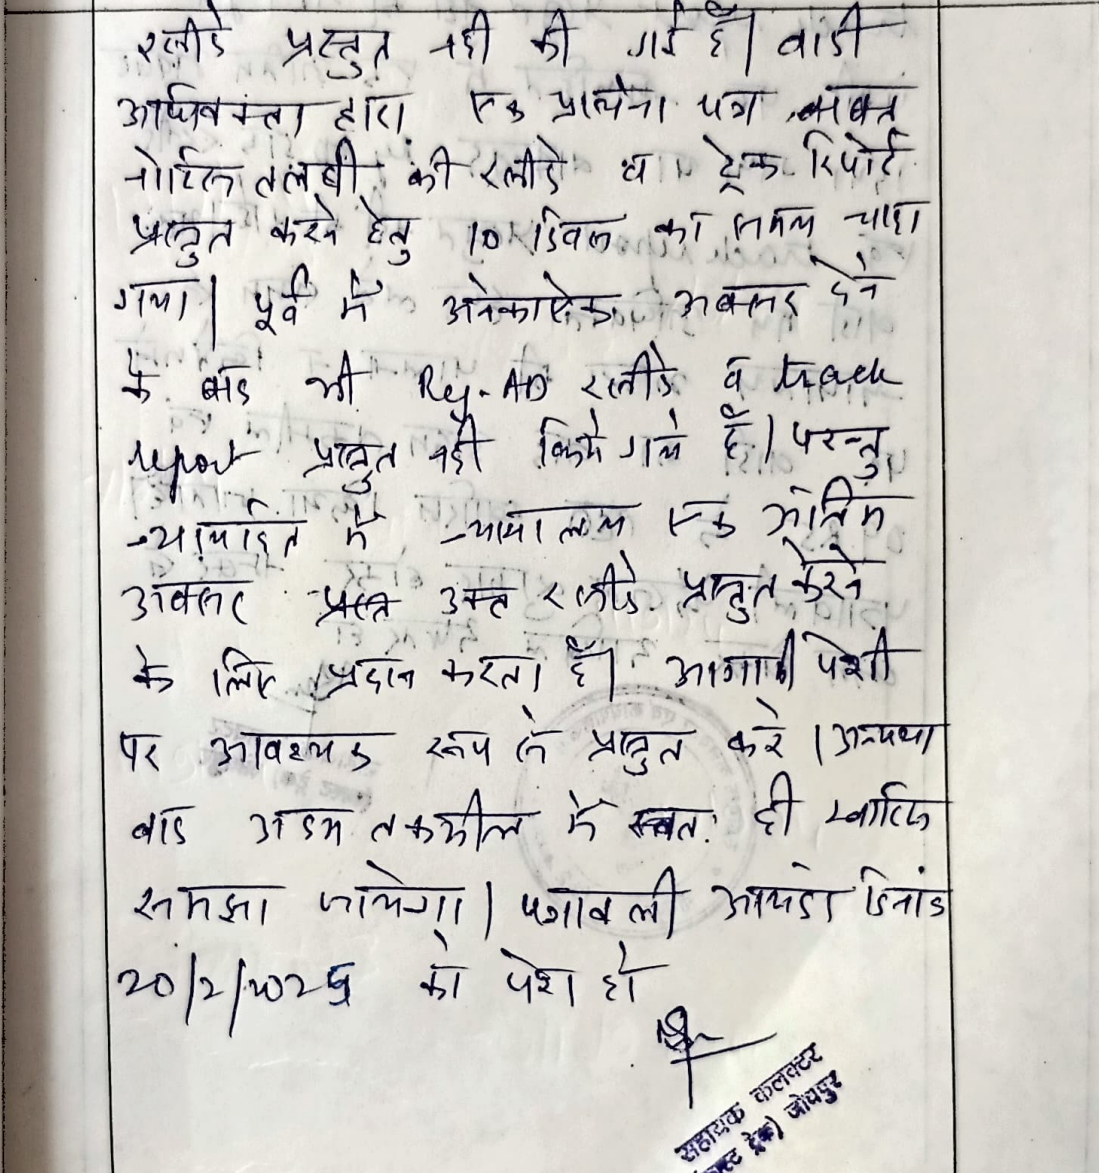 रसीदे प्रस्तुत नही की गई है। वादी
अधिवक्ता द्वारा एक प्रार्थना पत्र बाबत
नोटिस तलबी की रसीदे व ट्रेक रिपोर्ट
प्रस्तुत करने हेतु 10 दिवस का समय चाहा
गया। पूर्व में अनेकानेक अवसर देने
के बाद भी Reg-AD रसीदे व track
report प्रस्तुत नही किये गये है। परन्तु
न्यायहित में न्यायालय एक अंतिम
अवसर उक्त रसीदे प्रस्तुत करने
के लिए प्रदान करता है। आगामी पेशी
पर आवश्यक रूप से प्रस्तुत करे। अन्यथा
वाद अदम तकमील में स्वतः ही खारिज
समझा जायेगा। पत्रावली आयंदा दिनांक
20/2/2025 को पेश हो
सहायक कलक्टर
ट्रेक) जोधपुर